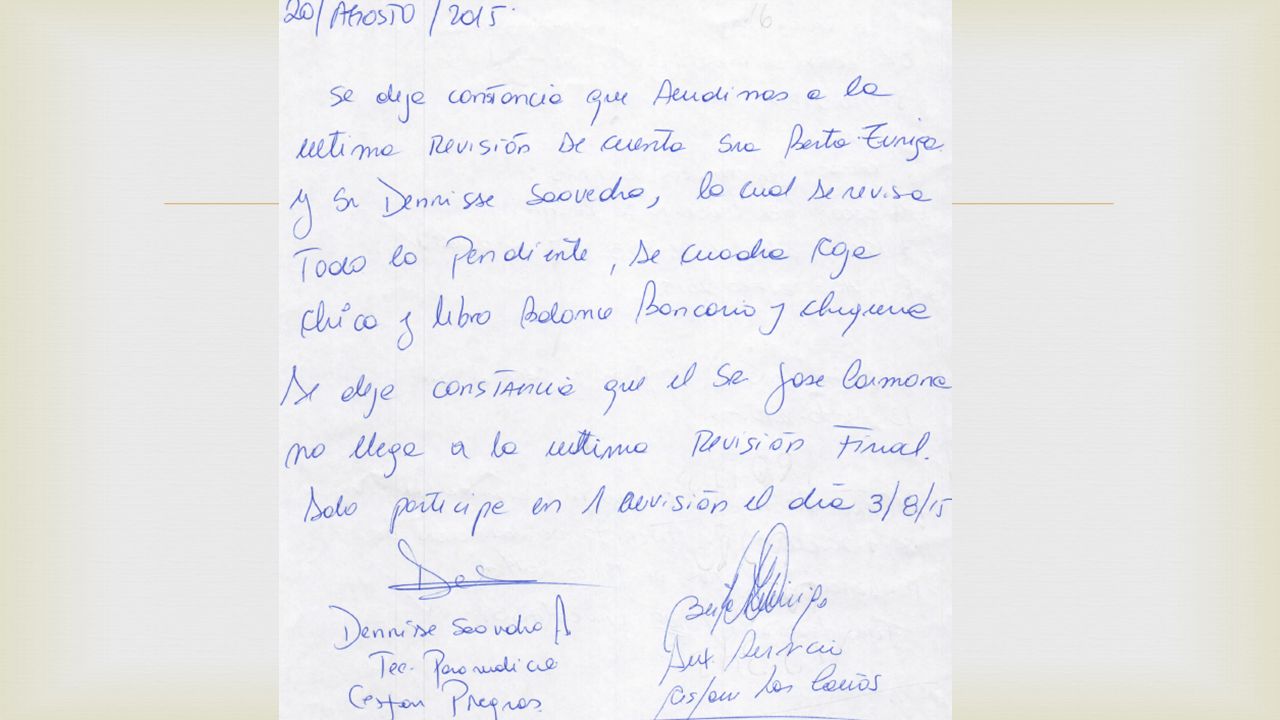 20/AGOSTO/2015.
16
se deja constancia que Acudimos a la
ultima Revisión De cuenta Sra Berta Zuniga
y Sr Dennisse Saavedra, la cual se revisa
Todo lo Pendiente, se cuadra Caja
chica y libro Balance Bancario y chequera
Se deja constancia que el Sr Jose Carmona
no llega a la ultima Revisión Final.
Solo participe en 1 Revisión el día 3/8/15
Dennisse Saavedra A
Tec. Paramedico
Cesfam
Berta Zuñiga
Aux Servicio
Cesfam Las